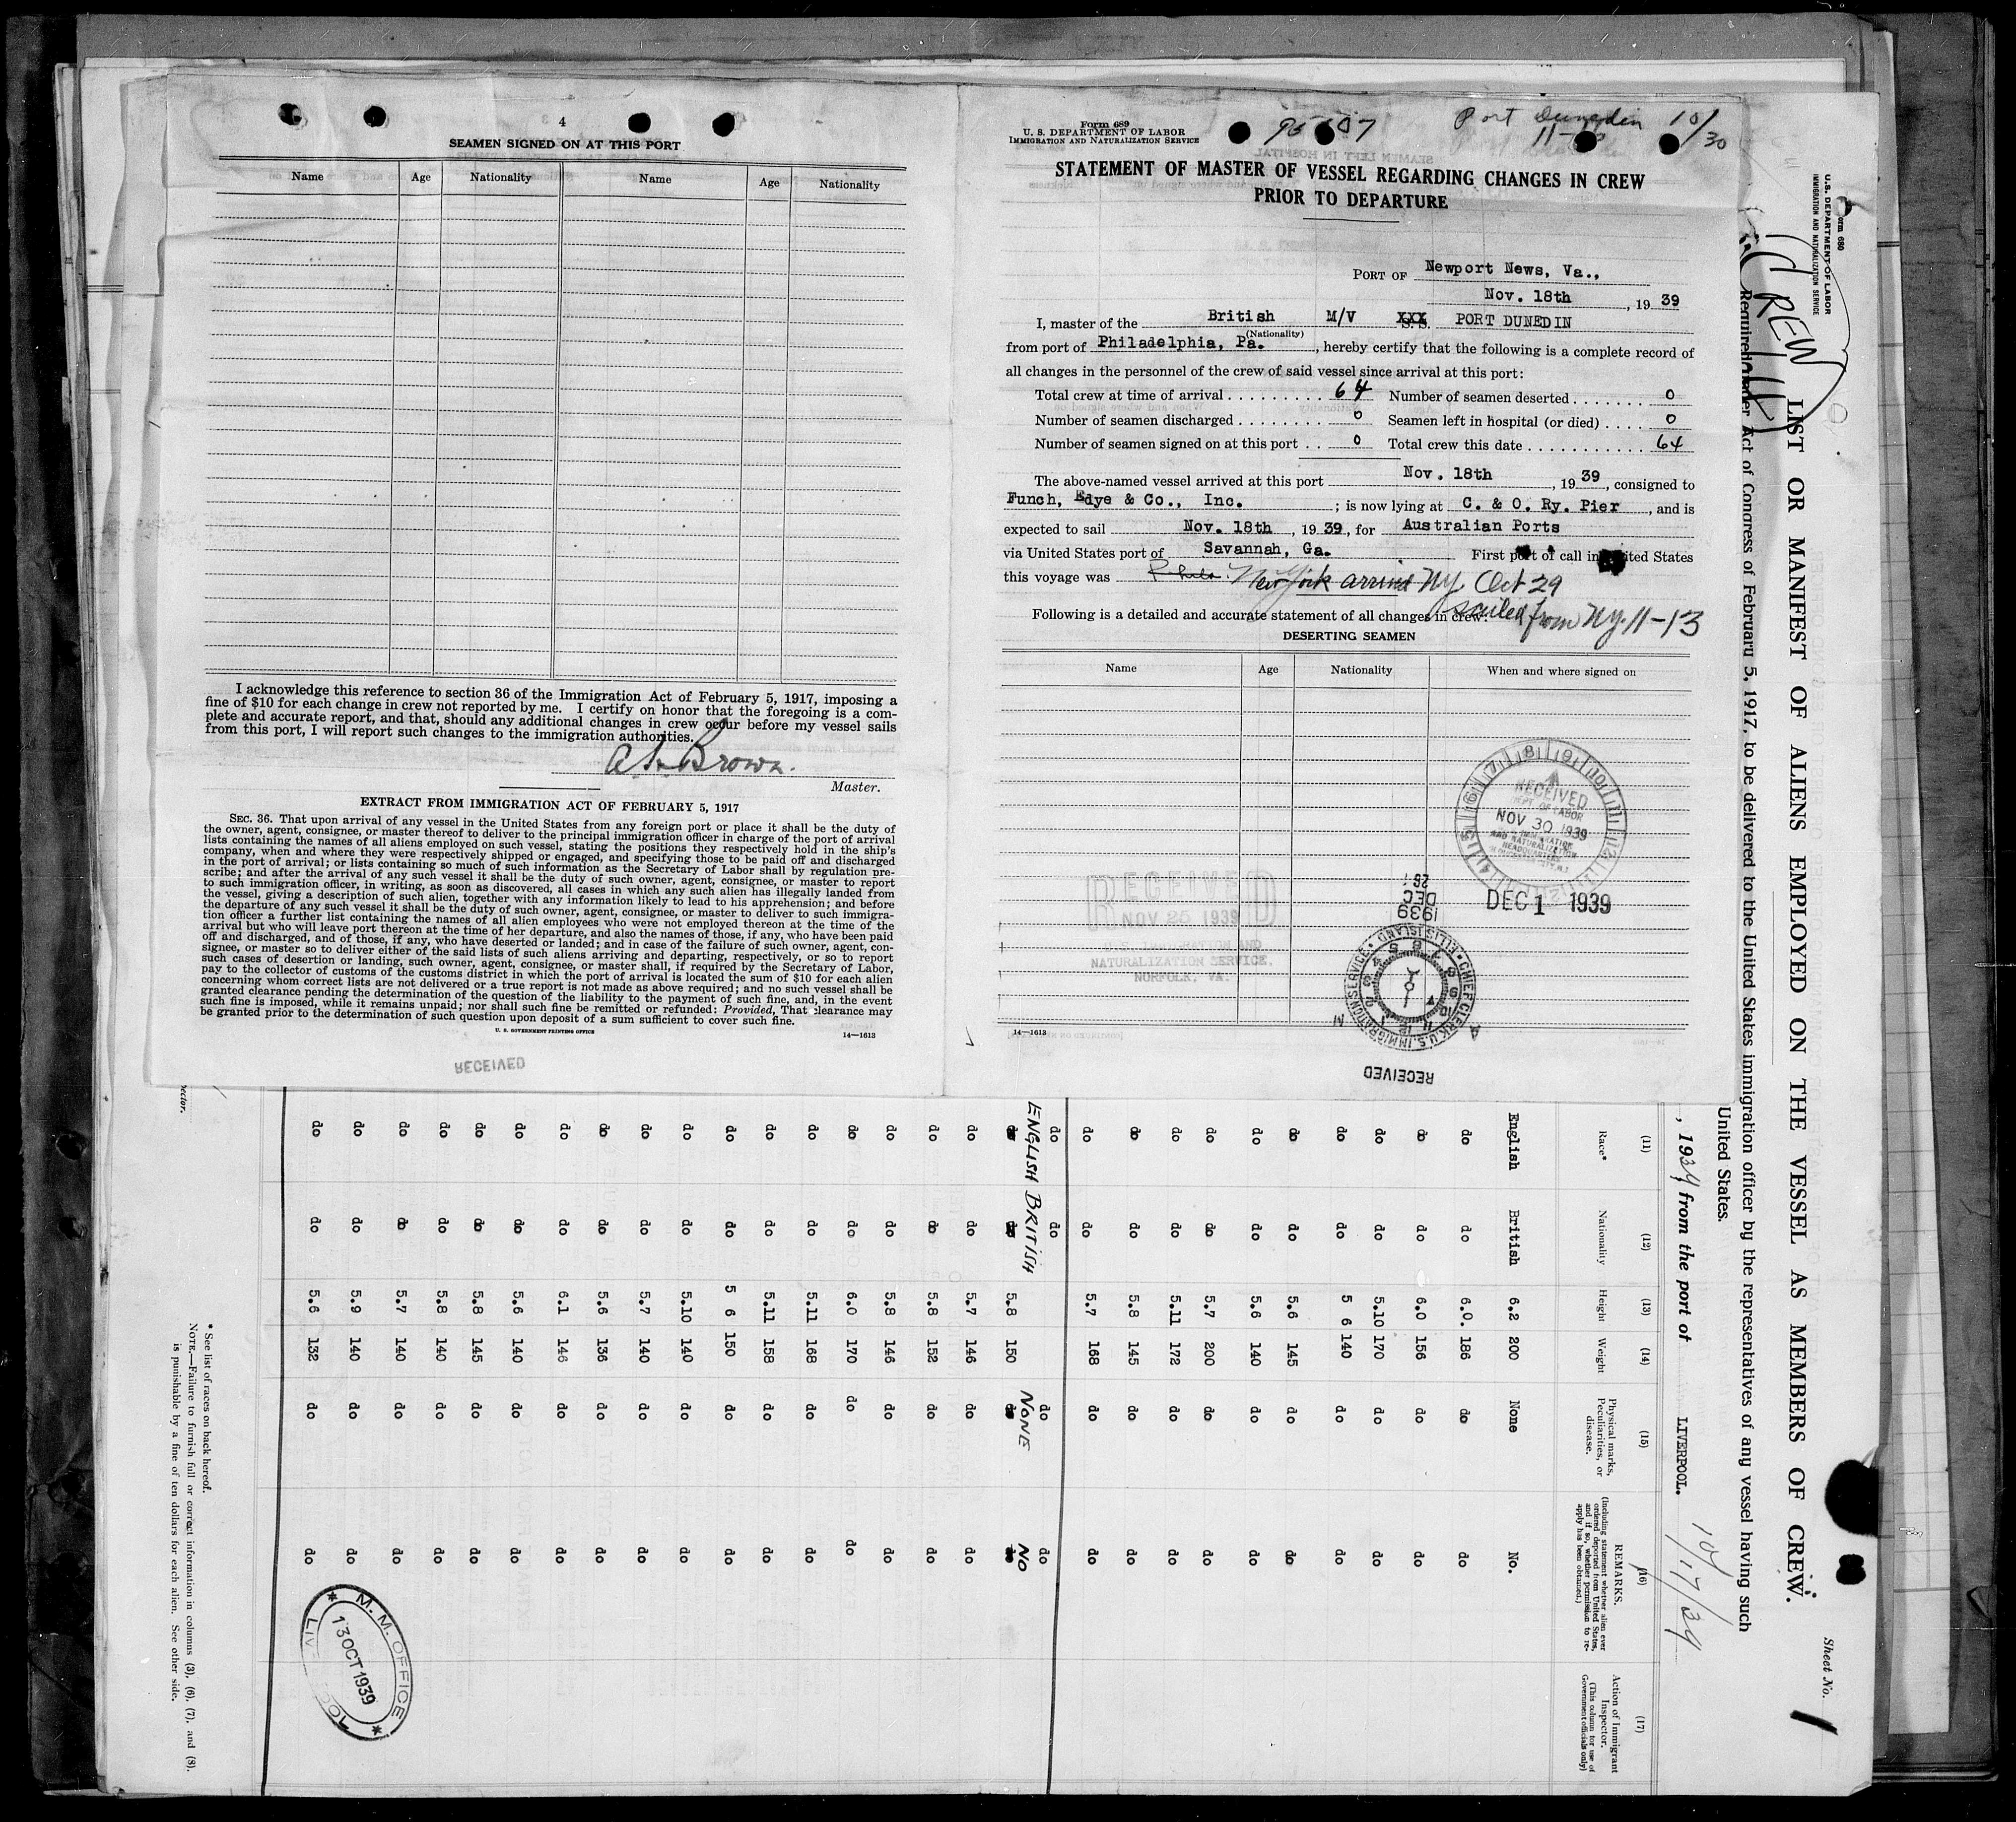 4
SEAMEN SIGNED ON AT THIS PORT
Name Age Nationality Name Age Nationality
I acknowledge this reference to section 36 of the Immigration Act of February 5, 1917, imposing a
fine of $10 for each change in crew not reported by me. I certify on honor that the foregoing is a com-
plete and accurate report, and that, should any additional changes in crew occur before my vessel sails
from this port, I will report such changes to the immigration authorities.
Brown.
Master.
EXTRACT FROM IMMIGRATION ACT OF FEBRUARY 5, 1917
SEC. 36. That upon arrival of any vessel in the United States from any foreign port or place it shall be the duty of
the owner, agent, consignee, or master thereof to deliver to the principal immigration officer in charge of the port of arrival
lists containing the names of all aliens employed on such vessel, stating the positions they respectively hold in the ship's
company, when and where they were respectively shipped or engaged, and specifying those to be paid off and discharged
in the port of arrival; or lists containing so much of such information as the Secretary of Labor shall by regulation pre-
scribe; and after the arrival of any such vessel it shall be the duty of such owner, agent, consignee, or master to report
to such immigration officer, in writing, as soon as discovered, all cases in which any such alien has illegally landed from
the vessel, giving a description of such alien, together with any information likely to lead to his apprehension; and before
the departure of any such vessel it shall be the duty of such owner, agent, consignee, or master to deliver to such immigra-
tion officer a further list containing the names of all alien employees who were not employed thereon at the time of the
arrival but who will leave port thereon at the time of her departure, and also the names of those, if any, who have been paid
off and discharged, and of those, if any, who have deserted or landed; and in case of the failure of such owner, agent, con-
signee, or master so to deliver either of the said lists of such aliens arriving and departing, respectively, or so to report
such cases of desertion or landing, such owner, agent, consignee, or master shall, if required by the Secretary of Labor,
pay to the collector of customs of the customs district in which the port of arrival is located the sum of $10 for each alien
concerning whom correct lists are not delivered or a true report is not made as above required; and no such vessel shall be
granted clearance pending the determination of the question of the liability to the payment of such fine, and, in the event
such fine is imposed, while it remains unpaid; nor shall such fine be remitted or refunded: Provided, That clearance may
be granted prior to the determination of such question upon deposit of a sum sufficient to cover such fine.
U. S. GOVERNMENT PRINTING OFFICE 14—1613
RECEIVED
Form 689
U. S. DEPARTMENT OF LABOR
IMMIGRATION AND NATURALIZATION SERVICE
Port Dunedin 10/30
STATEMENT OF MASTER OF VESSEL REGARDING CHANGES IN CREW
PRIOR TO DEPARTURE
PORT OF Newport News, Va.,
Nov. 18th, 19 39
I, master of the British M/V XXX S. S. PORT DUNEDIN
(Nationality)
from port of Philadelphia, Pa., hereby certify that the following is a complete record of
all changes in the personnel of the crew of said vessel since arrival at this port:
Total crew at time of arrival 64 Number of seamen deserted 0
Number of seamen discharged 0 Seamen left in hospital (or died) 0
Number of seamen signed on at this port 0 Total crew this date 64
The above-named vessel arrived at this port Nov. 18th, 19 39, consigned to
Funch, Edye & Co., Inc.; is now lying at C. & O. Ry. Pier, and is
expected to sail Nov. 18th, 19 39, for Australian Ports
via United States port of Savannah, Ga. First port of call in United States
this voyage was Phila. New York arrived NY Oct 29
Following is a detailed and accurate statement of all changes in crew: sailed from NY. 11-13
DESERTING SEAMEN
Name Age Nationality When and where signed on
RECEIVED
DEPT. OF LABOR
NOV 30 1939
RECEIVED
NOV 25 1939
NATURALIZATION SERVICE.
NORFOLK, VA.
DEC 1 1939
DEC
1939
CHIEF CLERK U.S. IMMIGRATION SERVICE • ELLIS ISLAND
RECEIVED
14—1613
Form 680
U. S. DEPARTMENT OF LABOR
IMMIGRATION AND NATURALIZATION SERVICE
CREW
LIST OR MANIFEST OF ALIENS EMPLOYED ON THE VESSEL AS MEMBERS OF CREW.
Sheet No. 1
Required under Act of Congress of February 5, 1917, to be delivered to the United States immigration officer by the representatives of any vessel having such
United States.
, 1939 from the port of LIVERPOOL. 10/17/39
(11) (12) (13) (14) (15) (16) (17)
Race* Nationality Height Weight Physical marks, Peculiarities, or disease. REMARKS. (Including statement whether alien ever ordered deported from United States, and if so, whether permission to re-apply has been obtained.) Action of Immigrant Inspector. (This column for use of Government officials only)
English British 6.2 200 None No.
do do 6.0. 186 do do
do do 6.0 156 do do
do do 5.10 170 do do
do do 5 6 140 do do
do do 5.6 145 do do
do do 5.6 140 do do
do do 5.7 200 do do
do do 5.11 172 do do
do do 5.8 145 do do
do do 5.7 168 do do
do do do do
ENGLISH BRITISH 5.8 150 NONE NO
do do 5.7 146 do do
do do 5.8 152 do do
do do 5.8 146 do do
do do 6.0 170 do do
do do 5.11 168 do do
do do 5.11 158 do do
do do 5 6 150 do do
do do 5.10 140 do do
do do 5.7 140 do do
do do 5.6 136 do do
do do 6.1 146 do do
do do 5.6 140 do do
do do 5.8 145 do do
do do 5.8 140 do do
do do 5.7 140 do do
do do 5.9 140 do do
do do 5.6 132 do do
M. M. OFFICE
13 OCT 1939
* See list of races on back hereof.
NOTE.—Failure to furnish full or correct information in columns (3), (6), (7), and (8).
is punishable by a fine of ten dollars for each alien. See other side.